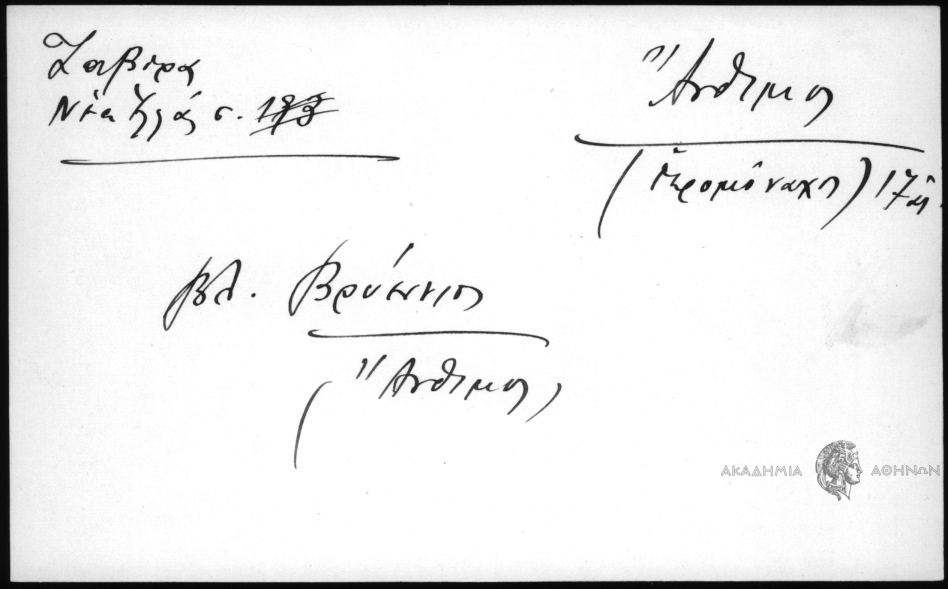 Ζαβίρα
Νέα Ἑλλάς σ.
Ἄνθιμος
(ἱερομόναχος) 17 αἰ.
βλ. Βρυώνιος
(Ἄνθιμος)
ΑΚΑΔΗΜΙΑ ΑΘΗΝΩΝ